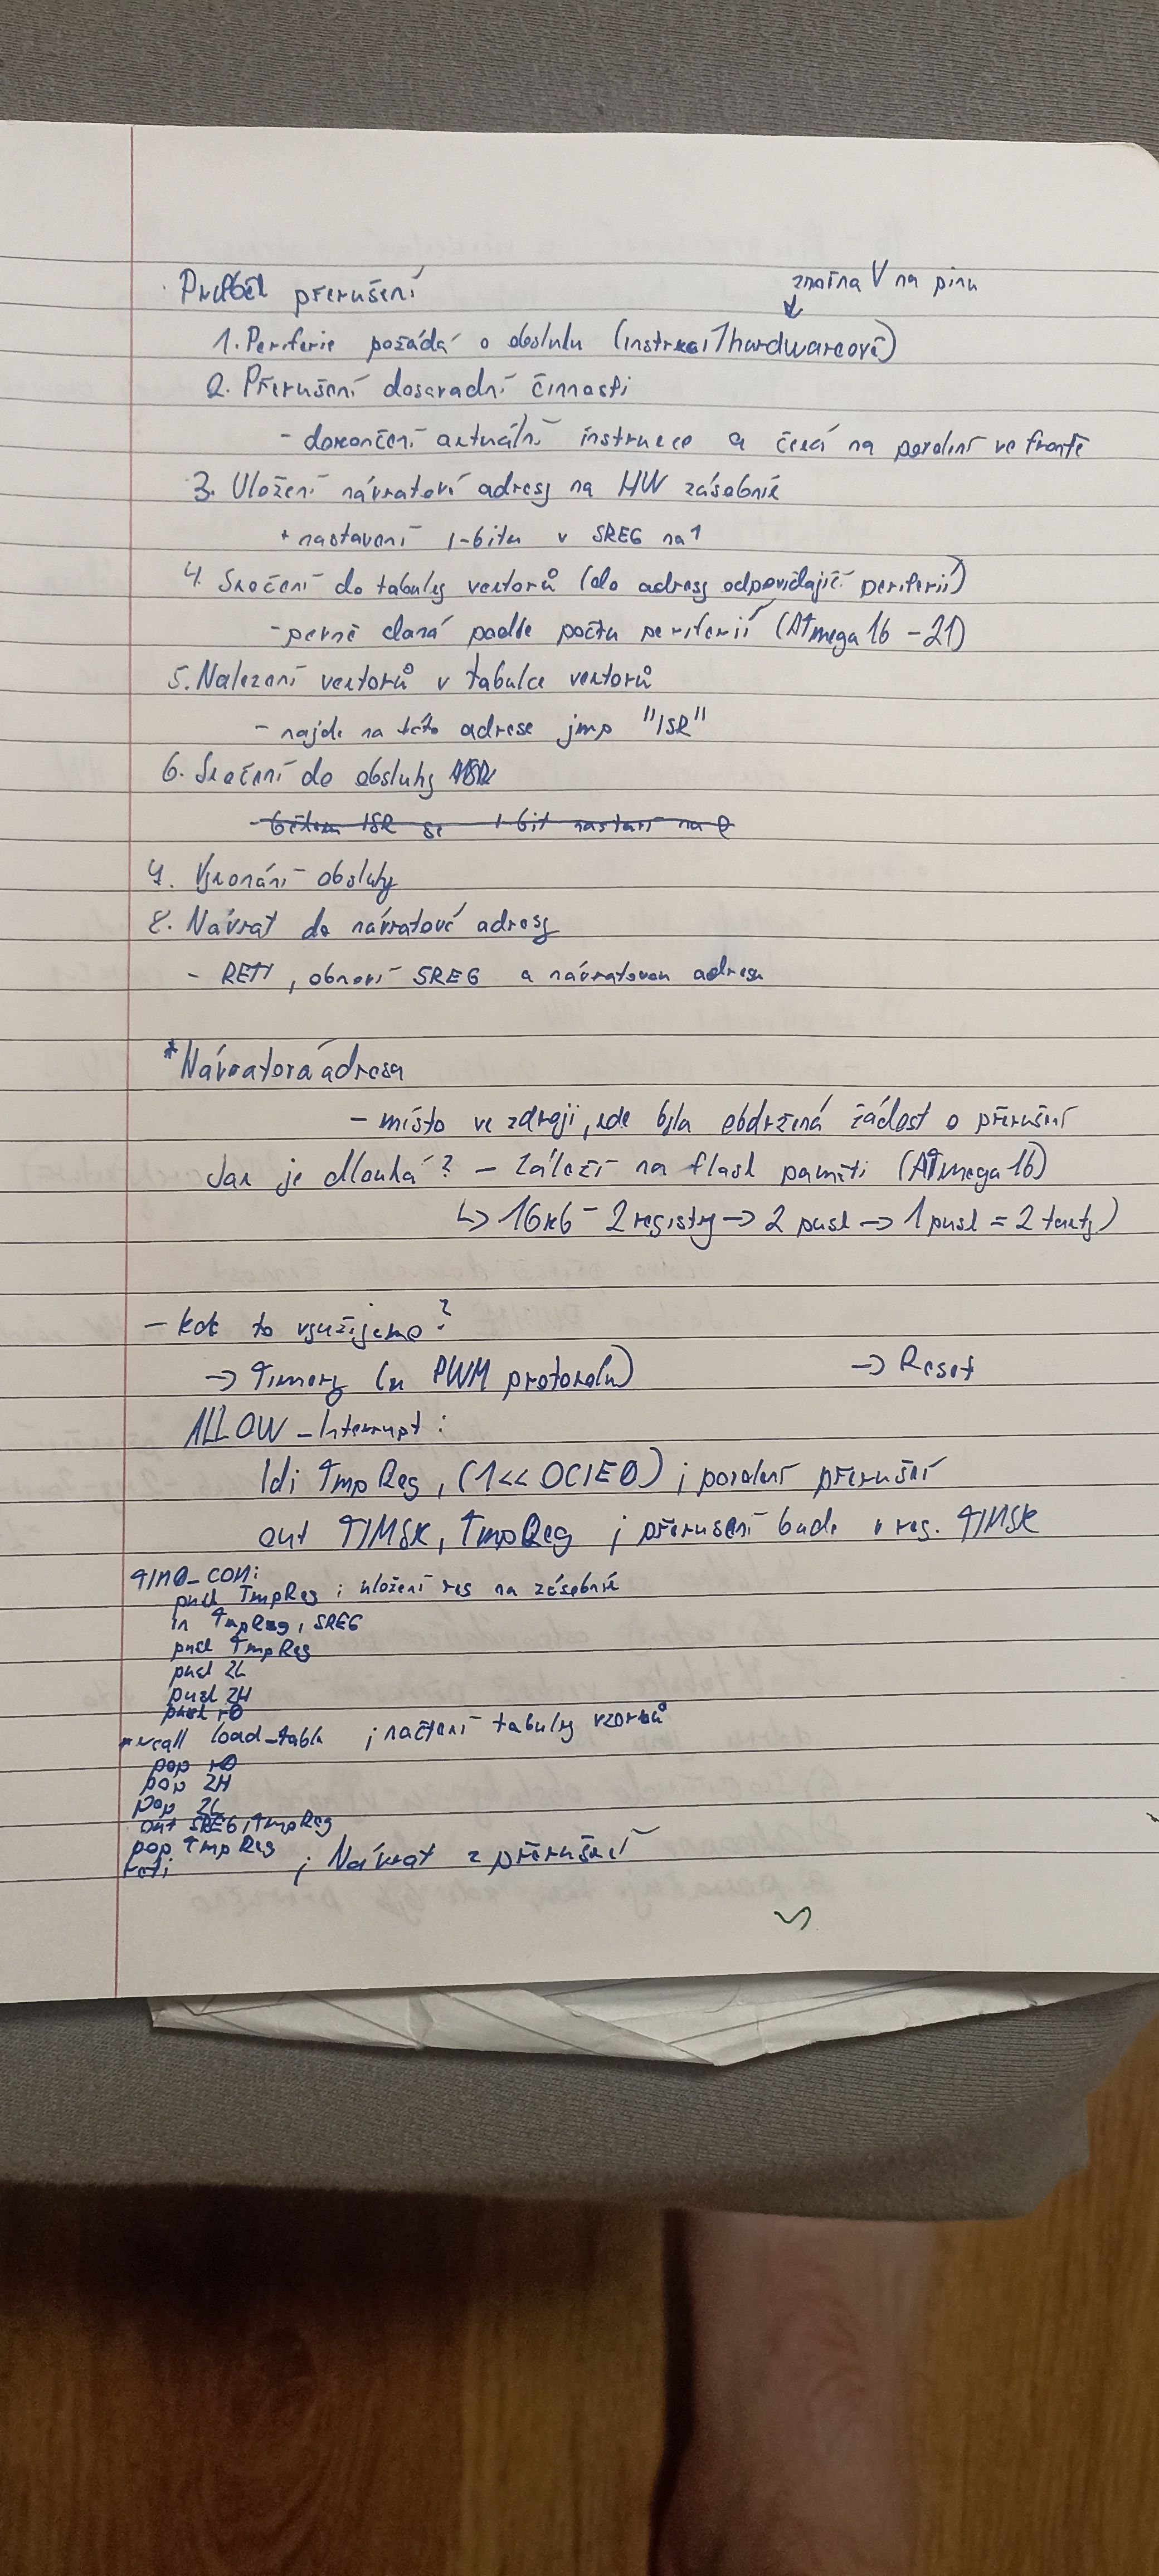 Průběh přerušení
změna V na pinu
↓
1. Periferie požádá o obsluhu (instrukcí/hardwarově)
2. Přerušení dosavadní činnosti
- dokončení aktuální instrukce a čeká na povolení ve frontě
3. Uložení návratové adresy na HW zásobník
+ nastavení I-bitu v SREG na 1
4. Skočení do tabulky vektorů (do adresy odpovídající periferii)
- pevně daná podle počtu periferií (ATmega 16 - 21)
5. Nalezení vektorů v tabulce vektorů
- najde na této adrese jmp "ISR"
6. Skočení do obsluhy
- během ISR se I-bit nastaví na 0
7. Vykonání obsluhy
8. Návrat do návratové adresy
- RETI, obnoví SREG a návratovou adresu
*Návratová adresa
- místo ve zdroji, kde byla obdržená žádost o přerušení
Jak je dlouhá? - Záleží na flash paměti (ATmega 16)
↳ 16kB - 2 registry → 2 push → 1 push = 2 takty)
- kde to využijeme?
→ Timery (u PWM protokolu) → Reset
ALLOW_Interrupt:
ldi TmpReg, (1<<OCIE0) ; povolení přerušení
out TIMSK, TmpReg ; přerušení bude v reg. TIMSK
TIM0_COM:
push TmpReg ; uložení reg na zásobník
in TmpReg, SREG
push TmpReg
push ZL
push ZH
push r0
rcall load_table ; načtení tabulky vzorků
pop r0
pop ZH
pop ZL
out SREG, TmpReg
pop TmpReg
reti ; Návrat z přerušení